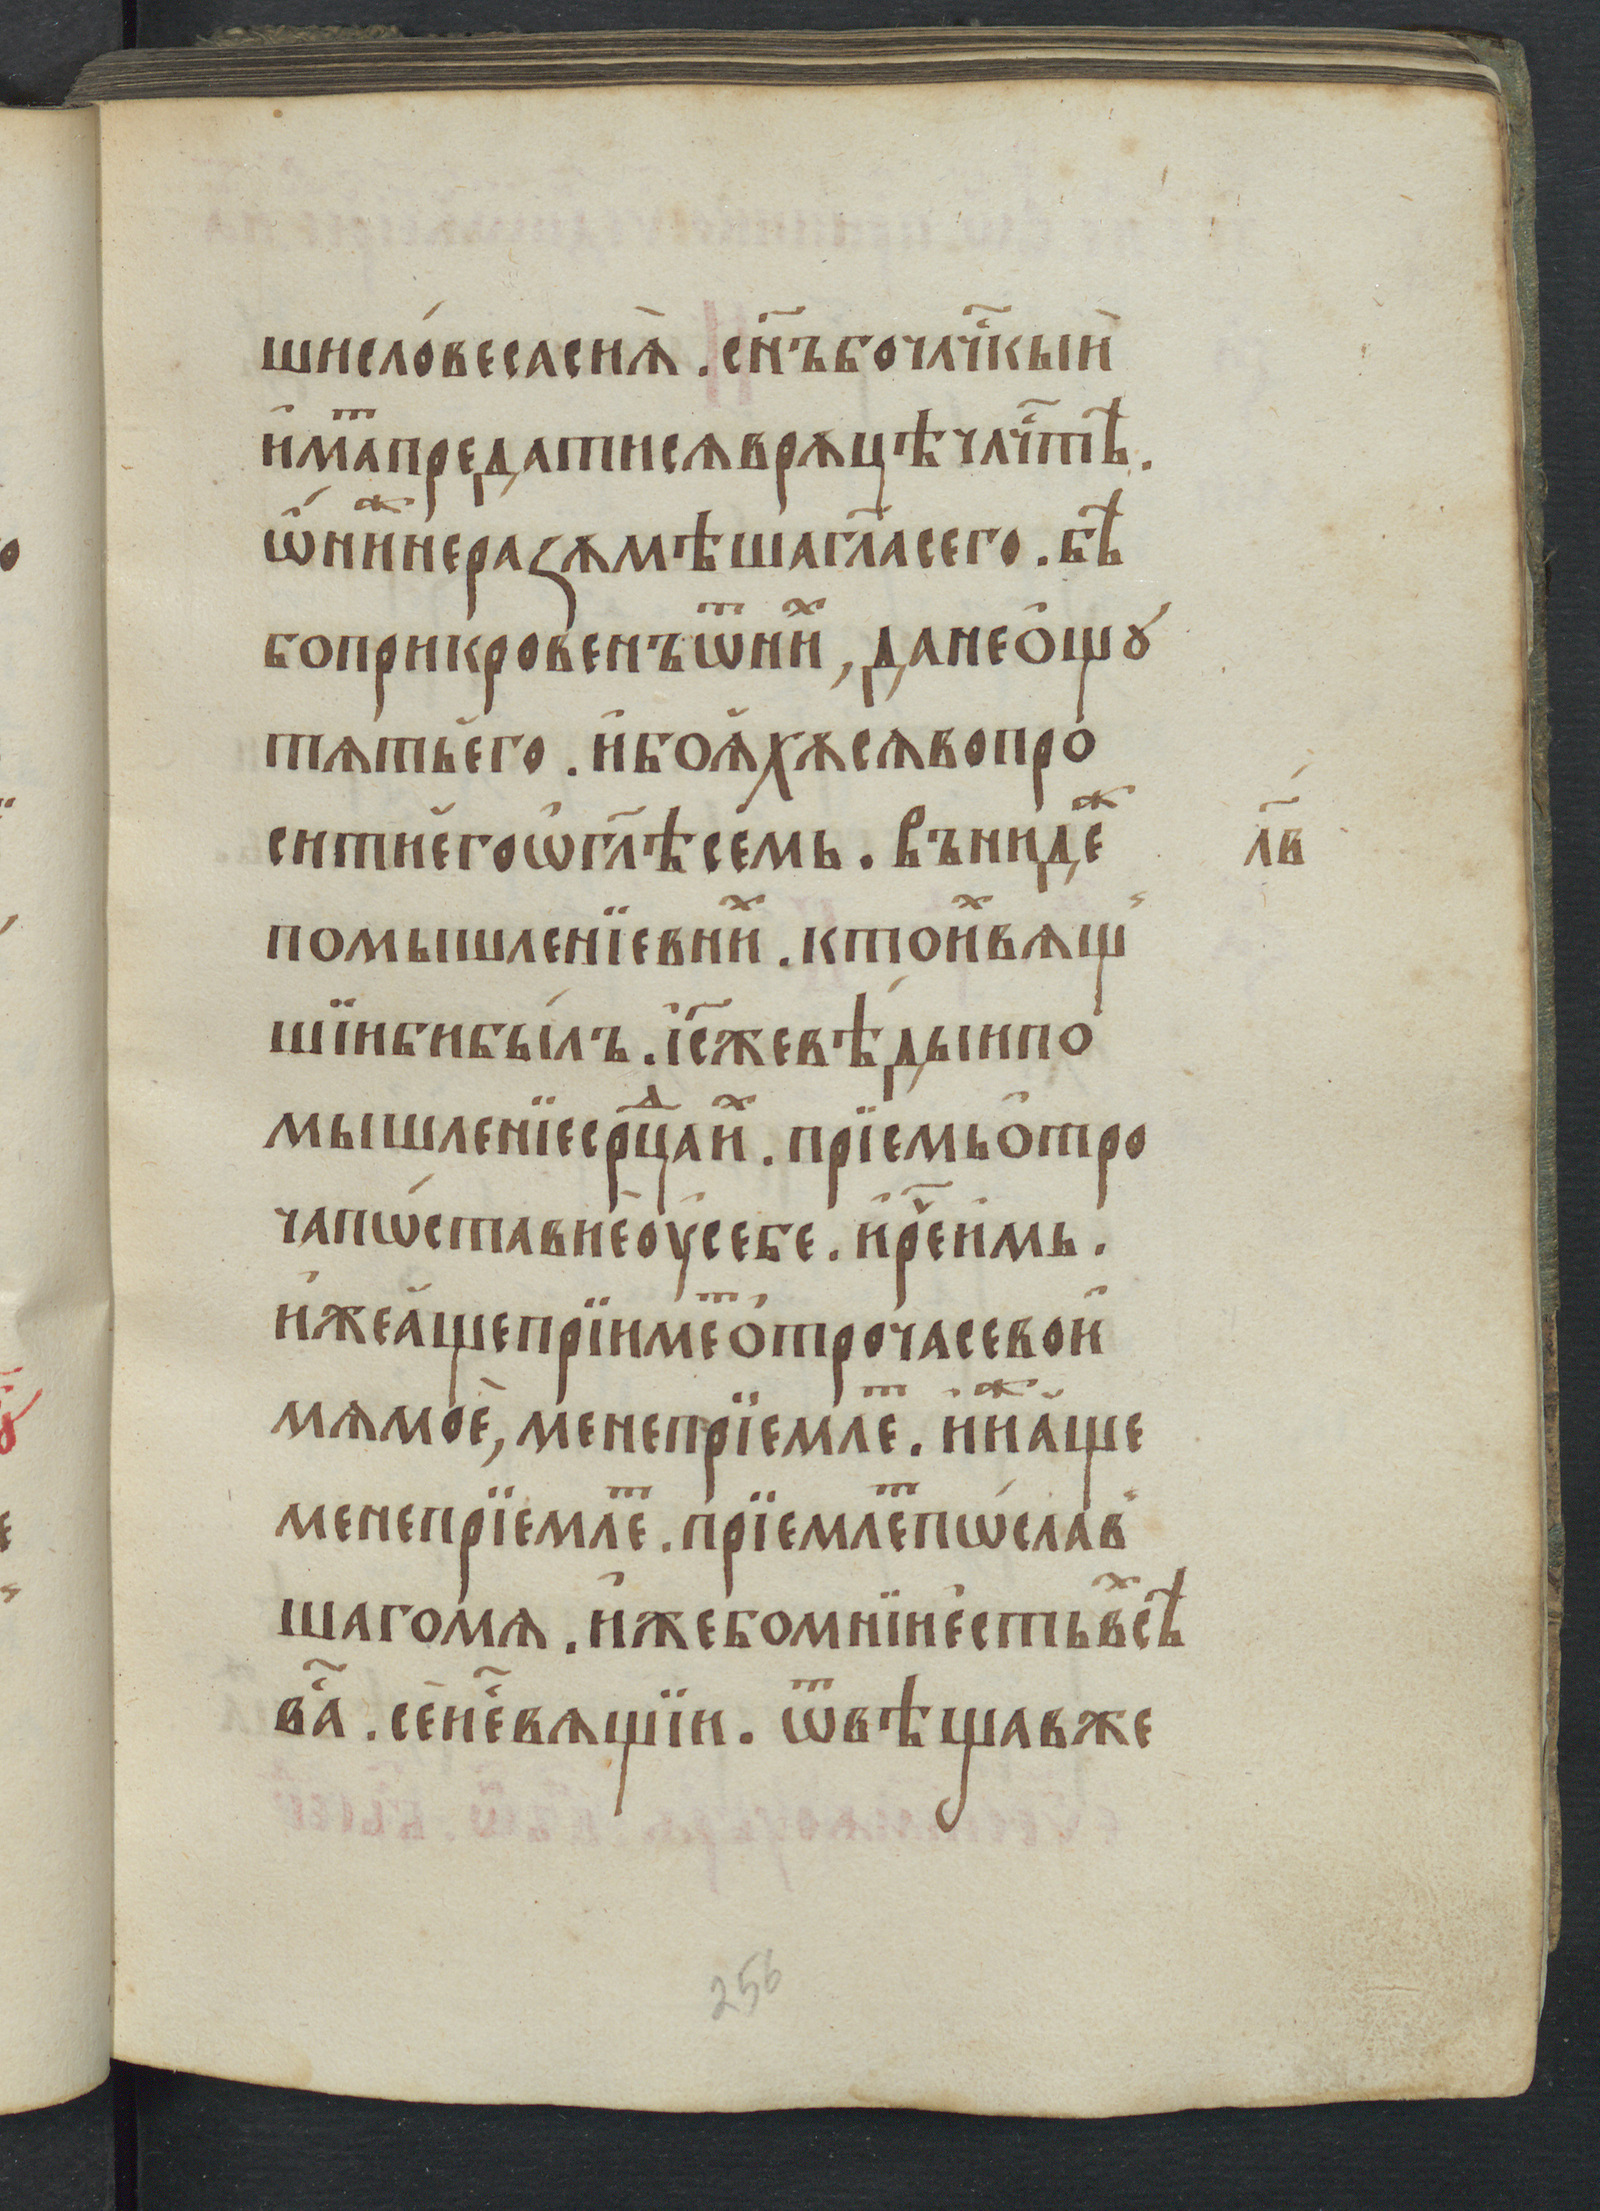 шисло́весасиѧ̀ . сн҃ъбочл҃чкыи̑
и̑маⷮпредатисѧврѫцѣчл҃чтѣ .
ѡ҆ниⷤнеразѫмѣшагл҃асего . бѣ
боприкровенъѿниⷯ , данео̑щꙋ
тѧтьегѡ . и̑боѧ̑хѫсѧвопро
ситиегоѡ̑гл҃ѣсемь . Въниидеⷤ
лв҃
помышленїевниⷯ . ктоиⷯвѧщ
шїибибы́лъ . і҆с҃жевѣ́дыипо
мышленїесрⷣцаиⷯ . прїемьо̑тро
чапѡ́ставиѐоу̑себе . и̑рч҃еи̑мь .
и̑жеа̑щепрїимеⷮо̑трочасевои̑
мѧмоѐ , менепрїемлеⷮ . и̑иⷤа̑ще
менепрїемлеⷮ . прїемлеⷮпѡ́слав
шагомѧ . и̑жебомнїие̑стьвсѣⷯ
ва҃с . сеине҃свѧщїи . ѿвѣщавже
256